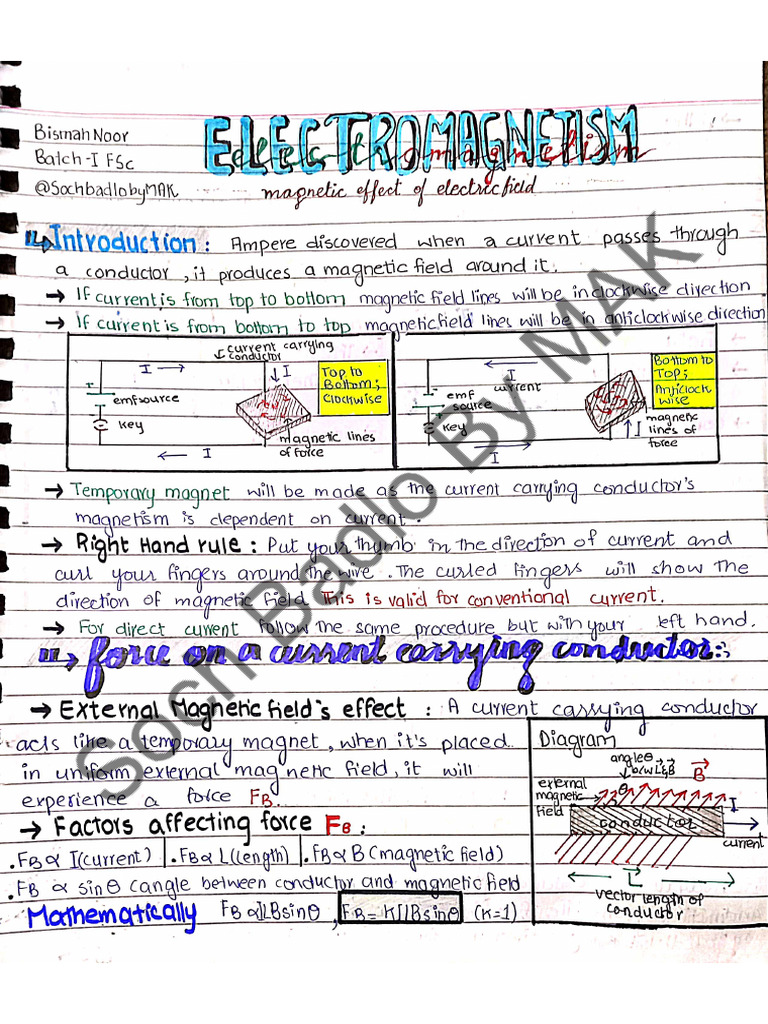 Bismah Noor
Batch-I FSc
@SochbadlobyMAK
ELECTROMAGNETISM
electromagnetism
magnetic effect of electric field
Introduction: Ampere discovered when a current passes through
a conductor, it produces a magnetic field around it.
→ If current is from top to bottom magnetic field lines will be in clockwise direction
→ If current is from bottom to top magnetic field lines will be in anticlockwise direction
current carrying
conductor
I
I
Top to
Bottom;
Clockwise
emf source
key
magnetic lines
of force
I
I
current
emf
source
key
Bottom to
Top;
Anticlock
wise
magnetic
lines of
force
I
I
→ Temporary magnet will be made as the current carrying conductor's
magnetism is dependent on current.
→ Right Hand rule: Put your thumb in the direction of current and
curl your fingers around the wire. The curled fingers will show the
direction of magnetic field. This is valid for conventional current.
→ For direct current follow the same procedure but with your left hand.
force on a current carrying conductor:
→ External Magnetic field's effect: A current carrying conductor
acts like a temporary magnet, when it's placed
in uniform external magnetic field, it will
experience a force FB.
→ Factors affecting force FB:
.FB ∝ I (current) | .FB ∝ L (length) | .FB ∝ B (magnetic field)
.FB ∝ sinθ (angle between conductor and magnetic field
Mathematically FB ∝ ILBsinθ, FB = KILBsinθ (K=1)
Diagram
angle θ
b/w L & B
B
external
magnetic
field
θ
I
conductor
current
L
vector length of
conductor
Soch Badlo By MAK